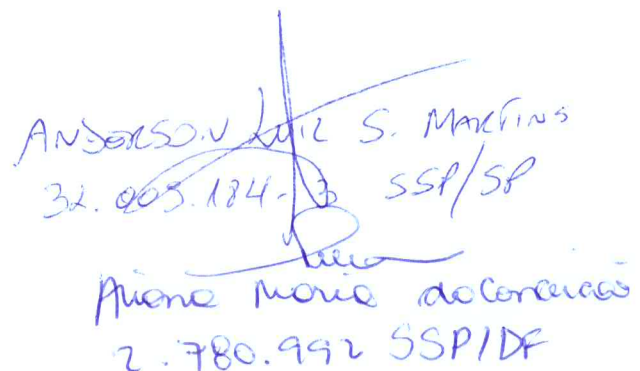 ANDERSON LUIZ S. MARTINS
32.009.184-3 SSP/SP
Ariana Maria da Conceição
2.780.992 SSP/DF